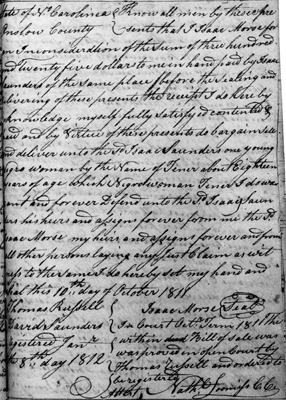 State of No. Carolinea } Know all men by these pre
Onslow County } sents that I Isaac Morse for
an In consideration of the Sum of three hundred
and twenty five dollar to me in hand paid by Isaac
Saunders of the same place before the sealing and
delivering of these presents the receipt I do here by
acknowledge myself fully satisfied contented &
paid and by Virtue of these presents do bargain Sell
and deliver unto the Sd Isaac Saunders one young
Negro woman by the Name of Tener about Eighteen
years of age which Negro woman Tener I do war
ent and forever Defend unto the Sd Isaac Saun
ders his heirs and assigns forever from me the Sd
Isaac Morse my heirs and assigns forever and from
all other persons laying any Just Claim as wit
ness to the same I do hereby set my hand and
Seal this 10th day of October 1811
Thomas Russell } Isaac Morse Seal
Harris Saunders } In Court Octr Term 1811 The
Registered Janr } within Bill of Sale was
the 8th day 1812 } was proved in open Court by
Thomas Russell and ordered to
be registered
Attest Nathl C.C.